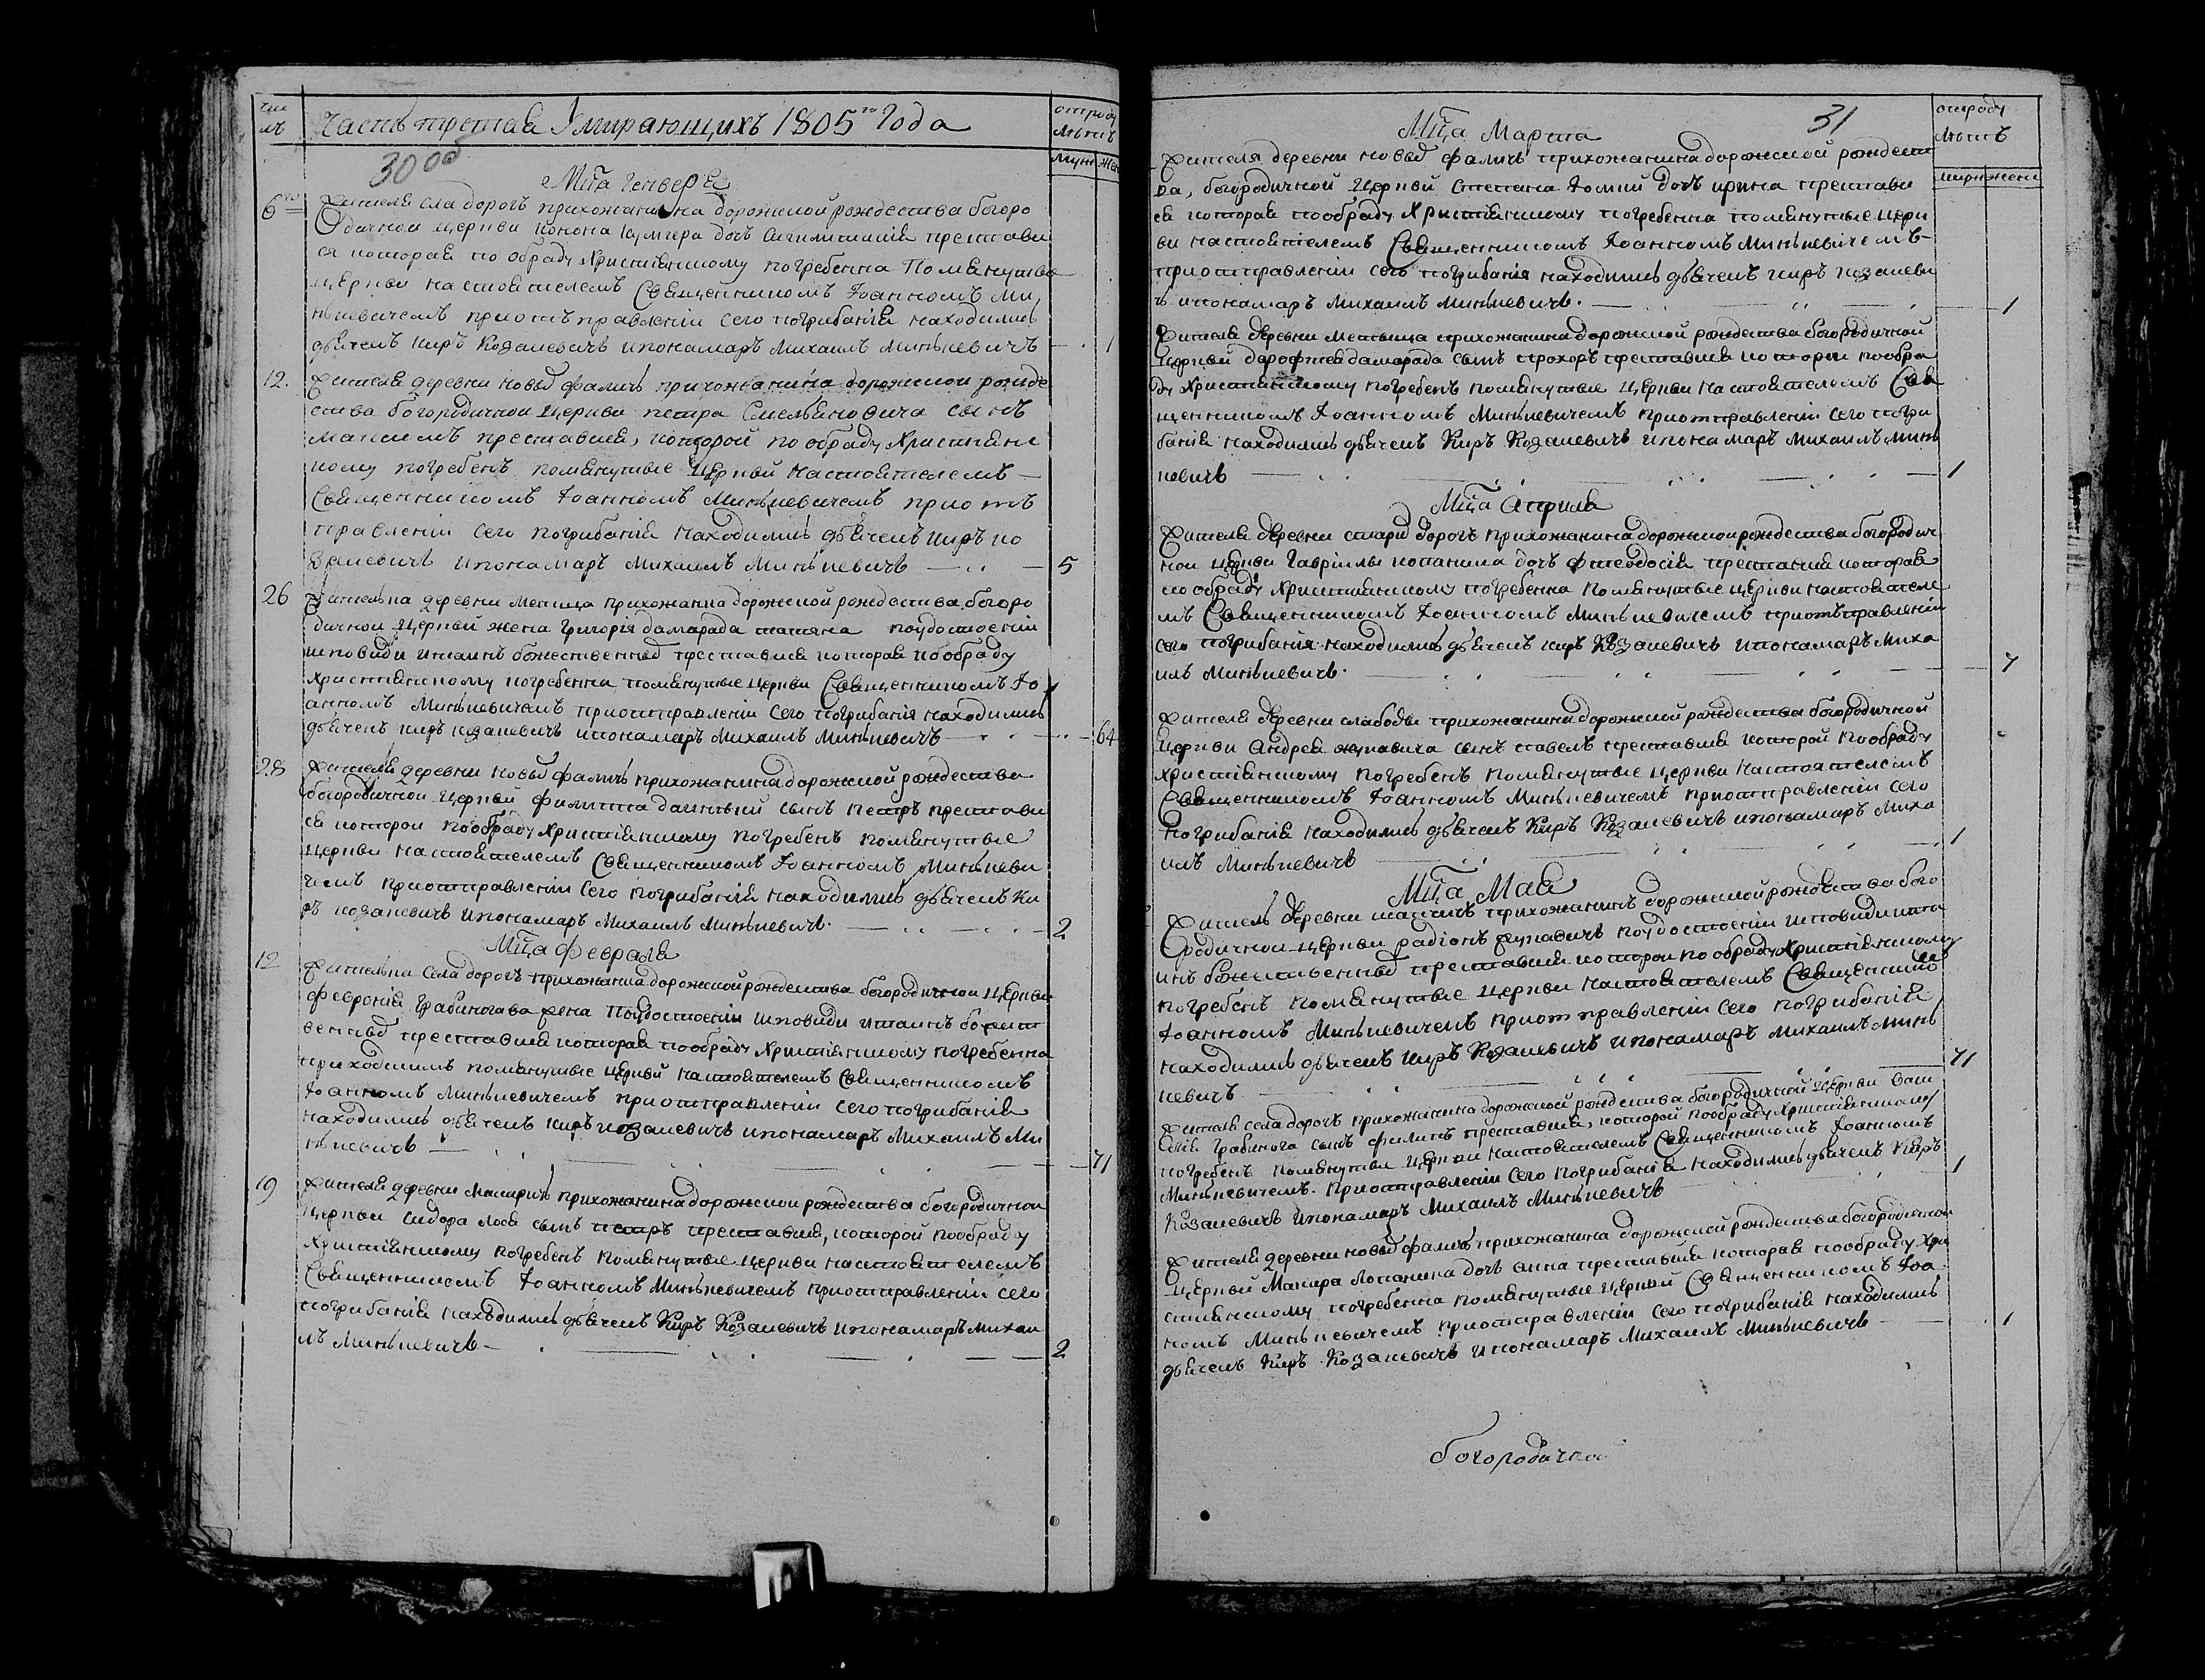 чис
ла
Часть третая Умирающихъ 1805го Года
отроду
лѣтъ
30 об
муж жен
Мца Генваря
6го Жителя сла дорогъ прихожанина дорожской рождества богоро
дичной церкви Конона дочь престави
ся которая по обряду Христiянскому погребенна Помянутыя
церкви настоятелемъ Священникомъ Iоанномъ Ми
нкевичемъ приотъправленiи сего погрибанiя находились
дьячекъ киръ Козакевичъ ипонамаръ Михаилъ Минкевичъ 1
12. Жителя деревни новыхъ фаличъ прихожанина дорожской рожде
ства богородичной церкви петра Емельяновича сынъ
Максимъ преставися, которой по обряду Христiянс
кому погребенъ помянутыя Церкви настоятелемъ
Священникомъ Iоанномъ Минкевичемъ приотъ
правленiи сего погрибанiя находились дьячекъ киръ ко
закевичъ ипонамаръ Михаилъ Минкевичъ 5
26 Жителька деревни прихожанка дорожской рождества богоро
дичной Церкви жена Григорiя дамарада татяна поудостоенiи
исповѣди итаинъ божественныхъ преставися которая пообряду
христiянскому погребенна помянутыя Церкви Священникомъ Iо
анномъ Минкевичемъ приотправленiи сего погрибанiя находились
дьячекъ киръ козакевичъ ипонамаръ Михаилъ Минкевичъ 64
28 Жителя деревни новыхъ фаличъ прихожанина дорожской рождества
богородичной Церкви филиппа сынъ петръ престави
ся которой пообряду Христiянскому погребенъ помянутыя
Церкви настоятелемъ Священникомъ Iоанномъ Минкеви
чемъ приотправленiи сего погрибанiя находились дьячекъ ки
ръ козакевичъ ипонамаръ Михаилъ Минкевичъ. 2
Мца февраля
12 Жителька села дорогъ прихожанка дорожской рождества богородичной церкви
феврония Грабинкова жена Поудостоенiи исповѣди итаинъ божест
венныхъ преставися которая пообряду Христiянскому погребенна
приходскимъ помянутыя Церкви настоятелемъ Священникомъ
Iоанномъ Минкевичемъ приотправленiи сего погрибанiя
находились дьячекъ киръ козакевичъ ипонамаръ Михаилъ Ми
нкевичъ 71
19 Жителя деревни прихожанина дорожской рождества богородичной
церкви Сидора лося сынъ петръ преставися, которой пообряду
Христiянскому погребенъ помянутыя Церкви настоятелемъ
Священникомъ Iоанномъ Минкевичемъ приотправленiи сего
погрибанiя находились дьячекъ Киръ Козакевичъ ипонамаръ Михаи
лъ Минкевичъ 2
31
отроду
лѣтъ
мужи жени
Мца Марта
Жителя деревни новых фаличъ прихожанина дорожской рождест
ва, богородичной Церкви степана дочь ирина престави
ся которая пообряду Христiянскому погребенна помянутые церк
ви настоятелемъ Священникомъ Iоанномъ Минкевичемъ
приотправленiи сего погрибания находились дьячекъ киръ козакеви
ч ипонамаръ Михаилъ Минкевичъ. 1
Жителя деревни прихожанина дорожской рождества богородичной
Церкви дорофтея дамарада сынъ прохоръ преставися которой пообря
ду Христiянскому погребенъ помянутые Церкви настоятелемъ Свя
щенникомъ Iоанномъ Минкевичемъ приотправленiи сего погри
банiя находились дьячекъ Киръ Козакевичъ ипонамаръ Михаилъ Минь
кевичъ 1
Мца Априля
Жителя деревни старих дорогъ прихожанина дорожской рождества богородич
ной церкви Гавриилы дочь фтеодосiя преставися которая
пообряду Христiянскому погребенна помянутые церкви настоятеле
мъ Священникомъ Iоанномъ Минкевичемъ приотъправленiи
сего погрибания находились дьячекъ киръ Козакевичъ ипонамаръ Миха
илъ Минкевичъ. 7
Жителя деревни слабоды прихожанина дорожской рождества богородичной
Церкви Андрея сынъ павелъ преставися которой пообряду
христiянскому погребенъ помянутые церкви настоятелемъ
Священникомъ Iоанномъ Минкевичемъ приотправленiи сего
погрибанiя находились дьячекъ Киръ Козакевичъ ипонамаръ Миха
илъ Минкевичъ 1
Мца Мая
Житель деревни прихожанинъ дорожской рождества бого
родичной церкви радiонъ поудостоенiи исповѣди ита
инъ божественныхъ преставися которой по обряду Христiянскому
погребенъ помянутые церкви настоятелемъ Священнико
Iоанномъ Минкевичемъ приотправленiи сего погрибанiя
находились дьячекъ киръ Козакевичъ ипонамаръ Михаилъ Минь
кевичъ 71
Жителя села дорогъ прихожанина дорожской рождества богородичной церкви васи
лия Грабинкога сынъ филипъ преставися, которой пообряду Христiянскому
погребенъ помянутыя церкви настоятелемъ Священникомъ Iоанномъ
Минкевичемъ. приотправленiи сего погрибанiя находились дьячекъ Киръ
Козакевичъ ипонамаръ Михаилъ Минкевичъ 1
Жителя деревни новых фаличъ прихожанина дорожской рождества богородичной
Церкви Макара дочь анна преставися которая пообряду Хри
стиянскому погребенна помянутые Церкви Священникомъ Iоа
номъ Минкевичемъ приотправленiи сего погрибанiя находились
дьячекъ Киръ Козакевичъ ипонамаръ Михаилъ Минкевичъ 1
богородичной